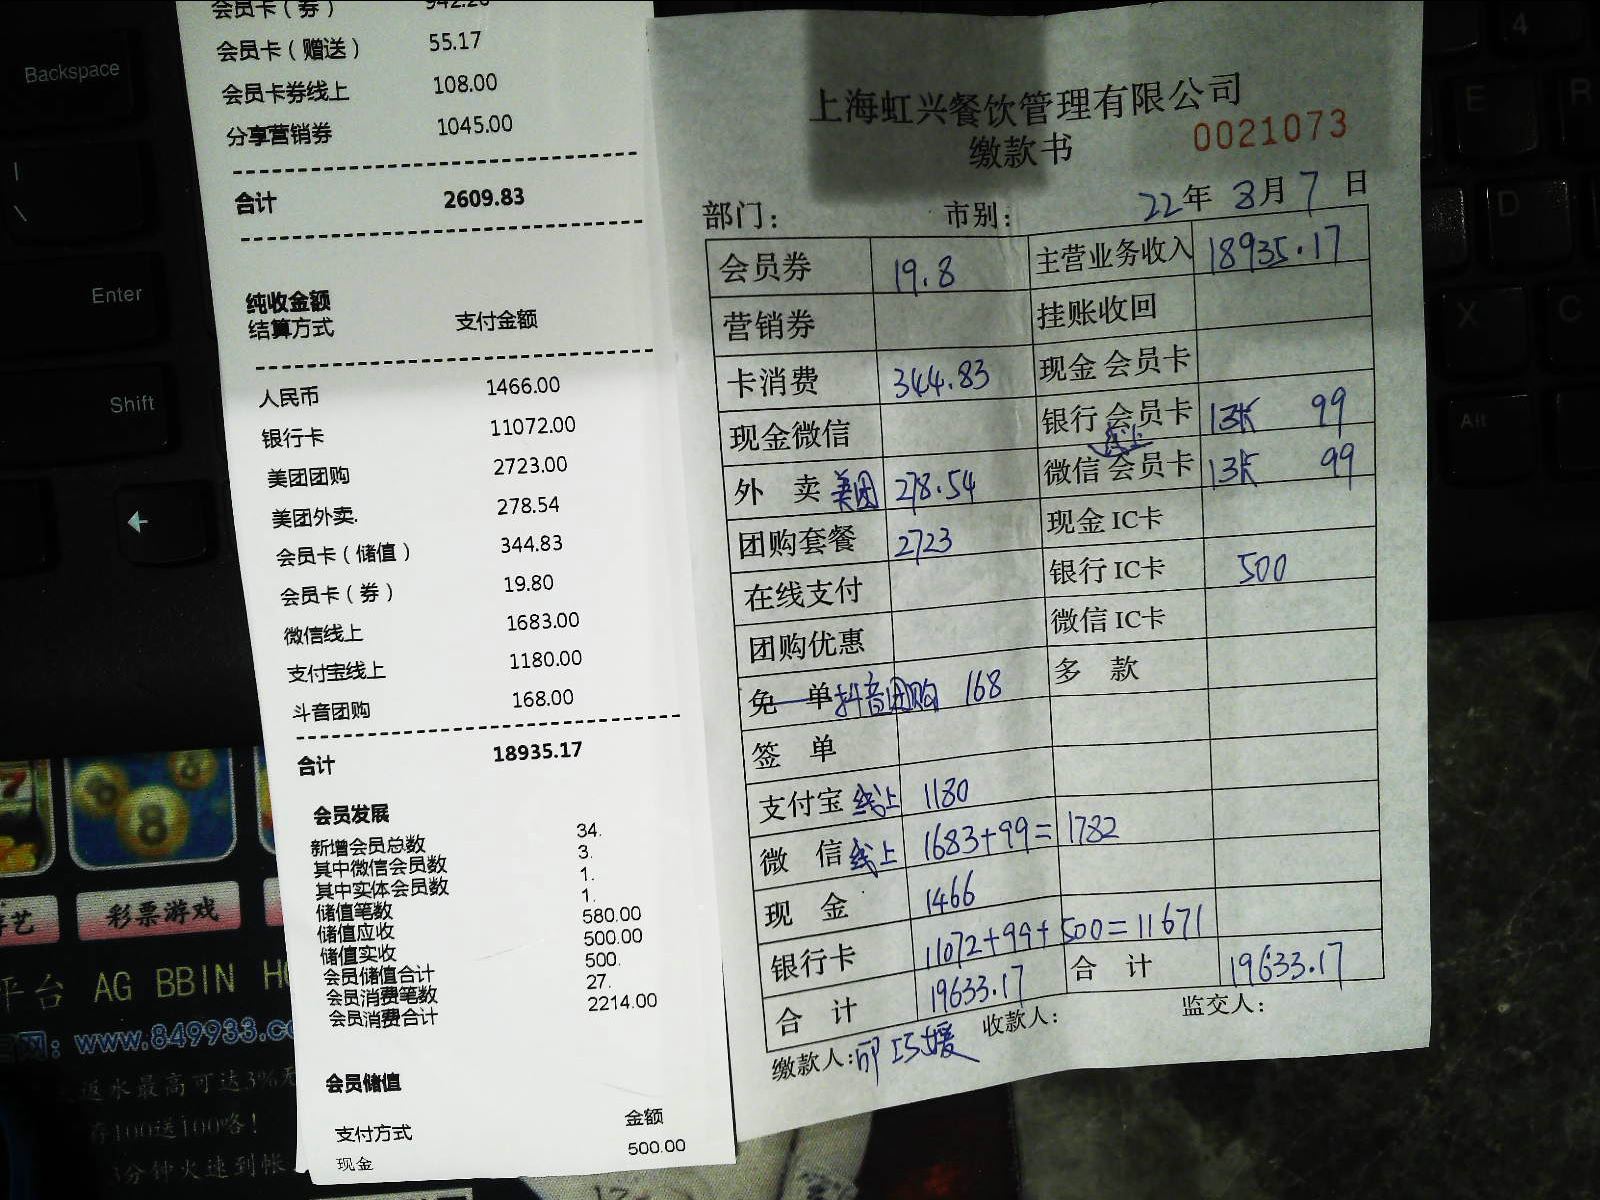 会员卡（券） 942.20
会员卡（赠送） 55.17
会员卡券线上 108.00
分享营销券 1045.00
合计 2609.83
纯收金额
结算方式 支付金额
人民币 1466.00
银行卡 11072.00
美团团购 2723.00
美团外卖. 278.54
会员卡（储值） 344.83
会员卡（券） 19.80
微信线上 1683.00
支付宝线上 1180.00
斗音团购 168.00
合计 18935.17
会员发展
新增会员总数 34.
其中微信会员数 3.
其中实体会员数 1.
储值笔数 1.
储值应收 580.00
储值实收 500.00
会员储值合计 500.
会员消费笔数 27.
会员消费合计 2214.00
会员储值
支付方式 金额
现金 500.00
上海虹兴餐饮管理有限公司
缴款书 0021073
22年 3月 7日
部门： 市别：
会员券 19.8 主营业务收入 18935.17
营销券 挂账收回
卡消费 344.83 现金 会员卡
现金微信 银行 会员卡 1张 99
外 卖 美团 278.54 微信 线上 会员卡 1张 99
团购套餐 2723 现金 IC卡
在线支付 银行 IC卡 500
团购优惠 微信 IC卡
免 单 抖音团购 168 多 款
签 单
支付宝 线上 1180
微 信 线上 1683+99= 1782
现 金 1466
银行卡 11072+99+500=11671
合 计 19633.17 合 计 19633.17
缴款人： 收款人： 监交人：
Backspace
Enter
Shift
4
E
R
D
X
C
Alt
彩票游戏
平台 AG BBIN
www.849933.c
返水最高可达3%
存100送100咯！
分钟火速到帐